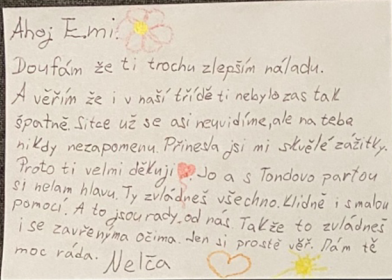 Ahoj Emi
Doufám že ti trochu zlepším náladu.
A věřím že i v naší třídě ti nebylo zas tak
špatně. Sitce už se asi neuvidíme, ale na tebe
nikdy nezapomenu. Přinesla jsi mi skvělé zážitky.
Proto ti velmi děkuji. Jo a s Tondovo partou
si nelam hlavu. Ty zvládneš všechno. Klidně i s malou
pomocí. A to jsou rady od nás. Takže to zvládneš
i se zavřenýma očima. Jen si prostě věř. Mám tě
moc ráda. Nelča